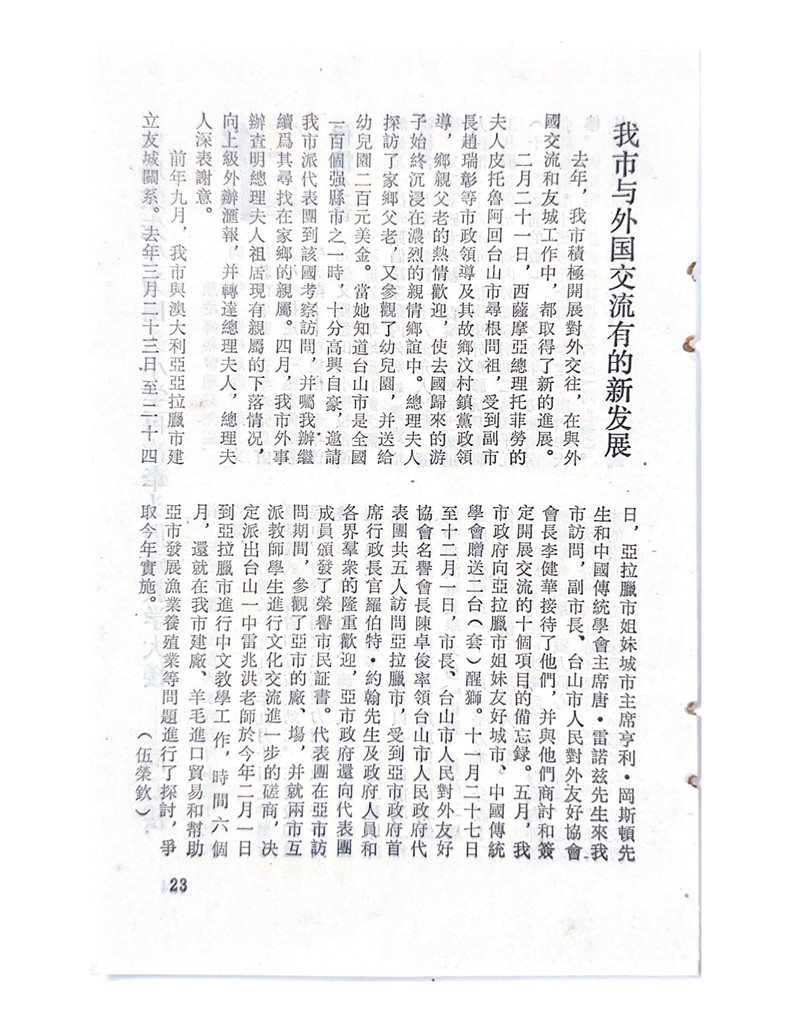 我市与外国交流有的新发展
去年，我市積極開展對外交往，在與外
國交流和友城工作中，都取得了新的進展。
二月二十一日，西薩摩亞總理托菲勞的
夫人皮托魯阿回台山市尋根問祖，受到副市
長趙瑞彰等市政領導及其故鄉汶村鎮黨政領
導，鄉親父老的熱情歡迎，使去國歸來的游
子始終沉浸在濃烈的親情鄉誼中。總理夫人
探訪了家鄉父老，又參觀了幼兒園，并送給
幼兒園二百元美金。當她知道台山市是全國
一百個强縣市之一時，十分高興自豪，邀請
我市派代表團到該國考察訪問，并囑我辦繼
續爲其尋找在家鄉的親屬。四月，我市外事
辦查明總理夫人祖居現有親屬的下落情况，
向上級外辦滙報，并轉達總理夫人，總理夫
人深表謝意。
前年九月，我市與澳大利亞亞拉臘市建
立友城關系。去年三月二十三日至二十四
日，亞拉臘市姐妹城市主席亨利·岡斯頓先
生和中國傳統學會主席唐·雷諾兹先生來我
市訪問，副市長、台山市人民對外友好協會
會長李健華接待了他們，并與他們商討和簽
定開展交流的十個項目的備忘録。五月，我
市政府向亞拉臘市姐妹友好城市、中國傳統
學會贈送二台（套）醒獅。十一月二十七日
至十二月一日，市長、台山市人民對外友好
協會名譽會長陳卓俊率領台山市人民政府代
表團共五人訪問亞拉臘市，受到亞市政府首
席行政長官羅伯特·約翰先生及政府人員和
各界羣衆的隆重歡迎，亞市政府還向代表團
成員頒發了榮譽市民証書。代表團在亞市訪
問期間，參觀了亞市的廠、塲，并就兩市互
派教師學生進行文化交流進一步的磋商，决
定派出台山一中雷兆洪老師於今年二月一日
到亞拉臘市進行中文教學工作，時間六個
月，還就在我市建廠、羊毛進口貿易和幫助
亞市發展漁業養殖業等問題進行了探討，爭
取今年實施。
（伍榮欽）
23